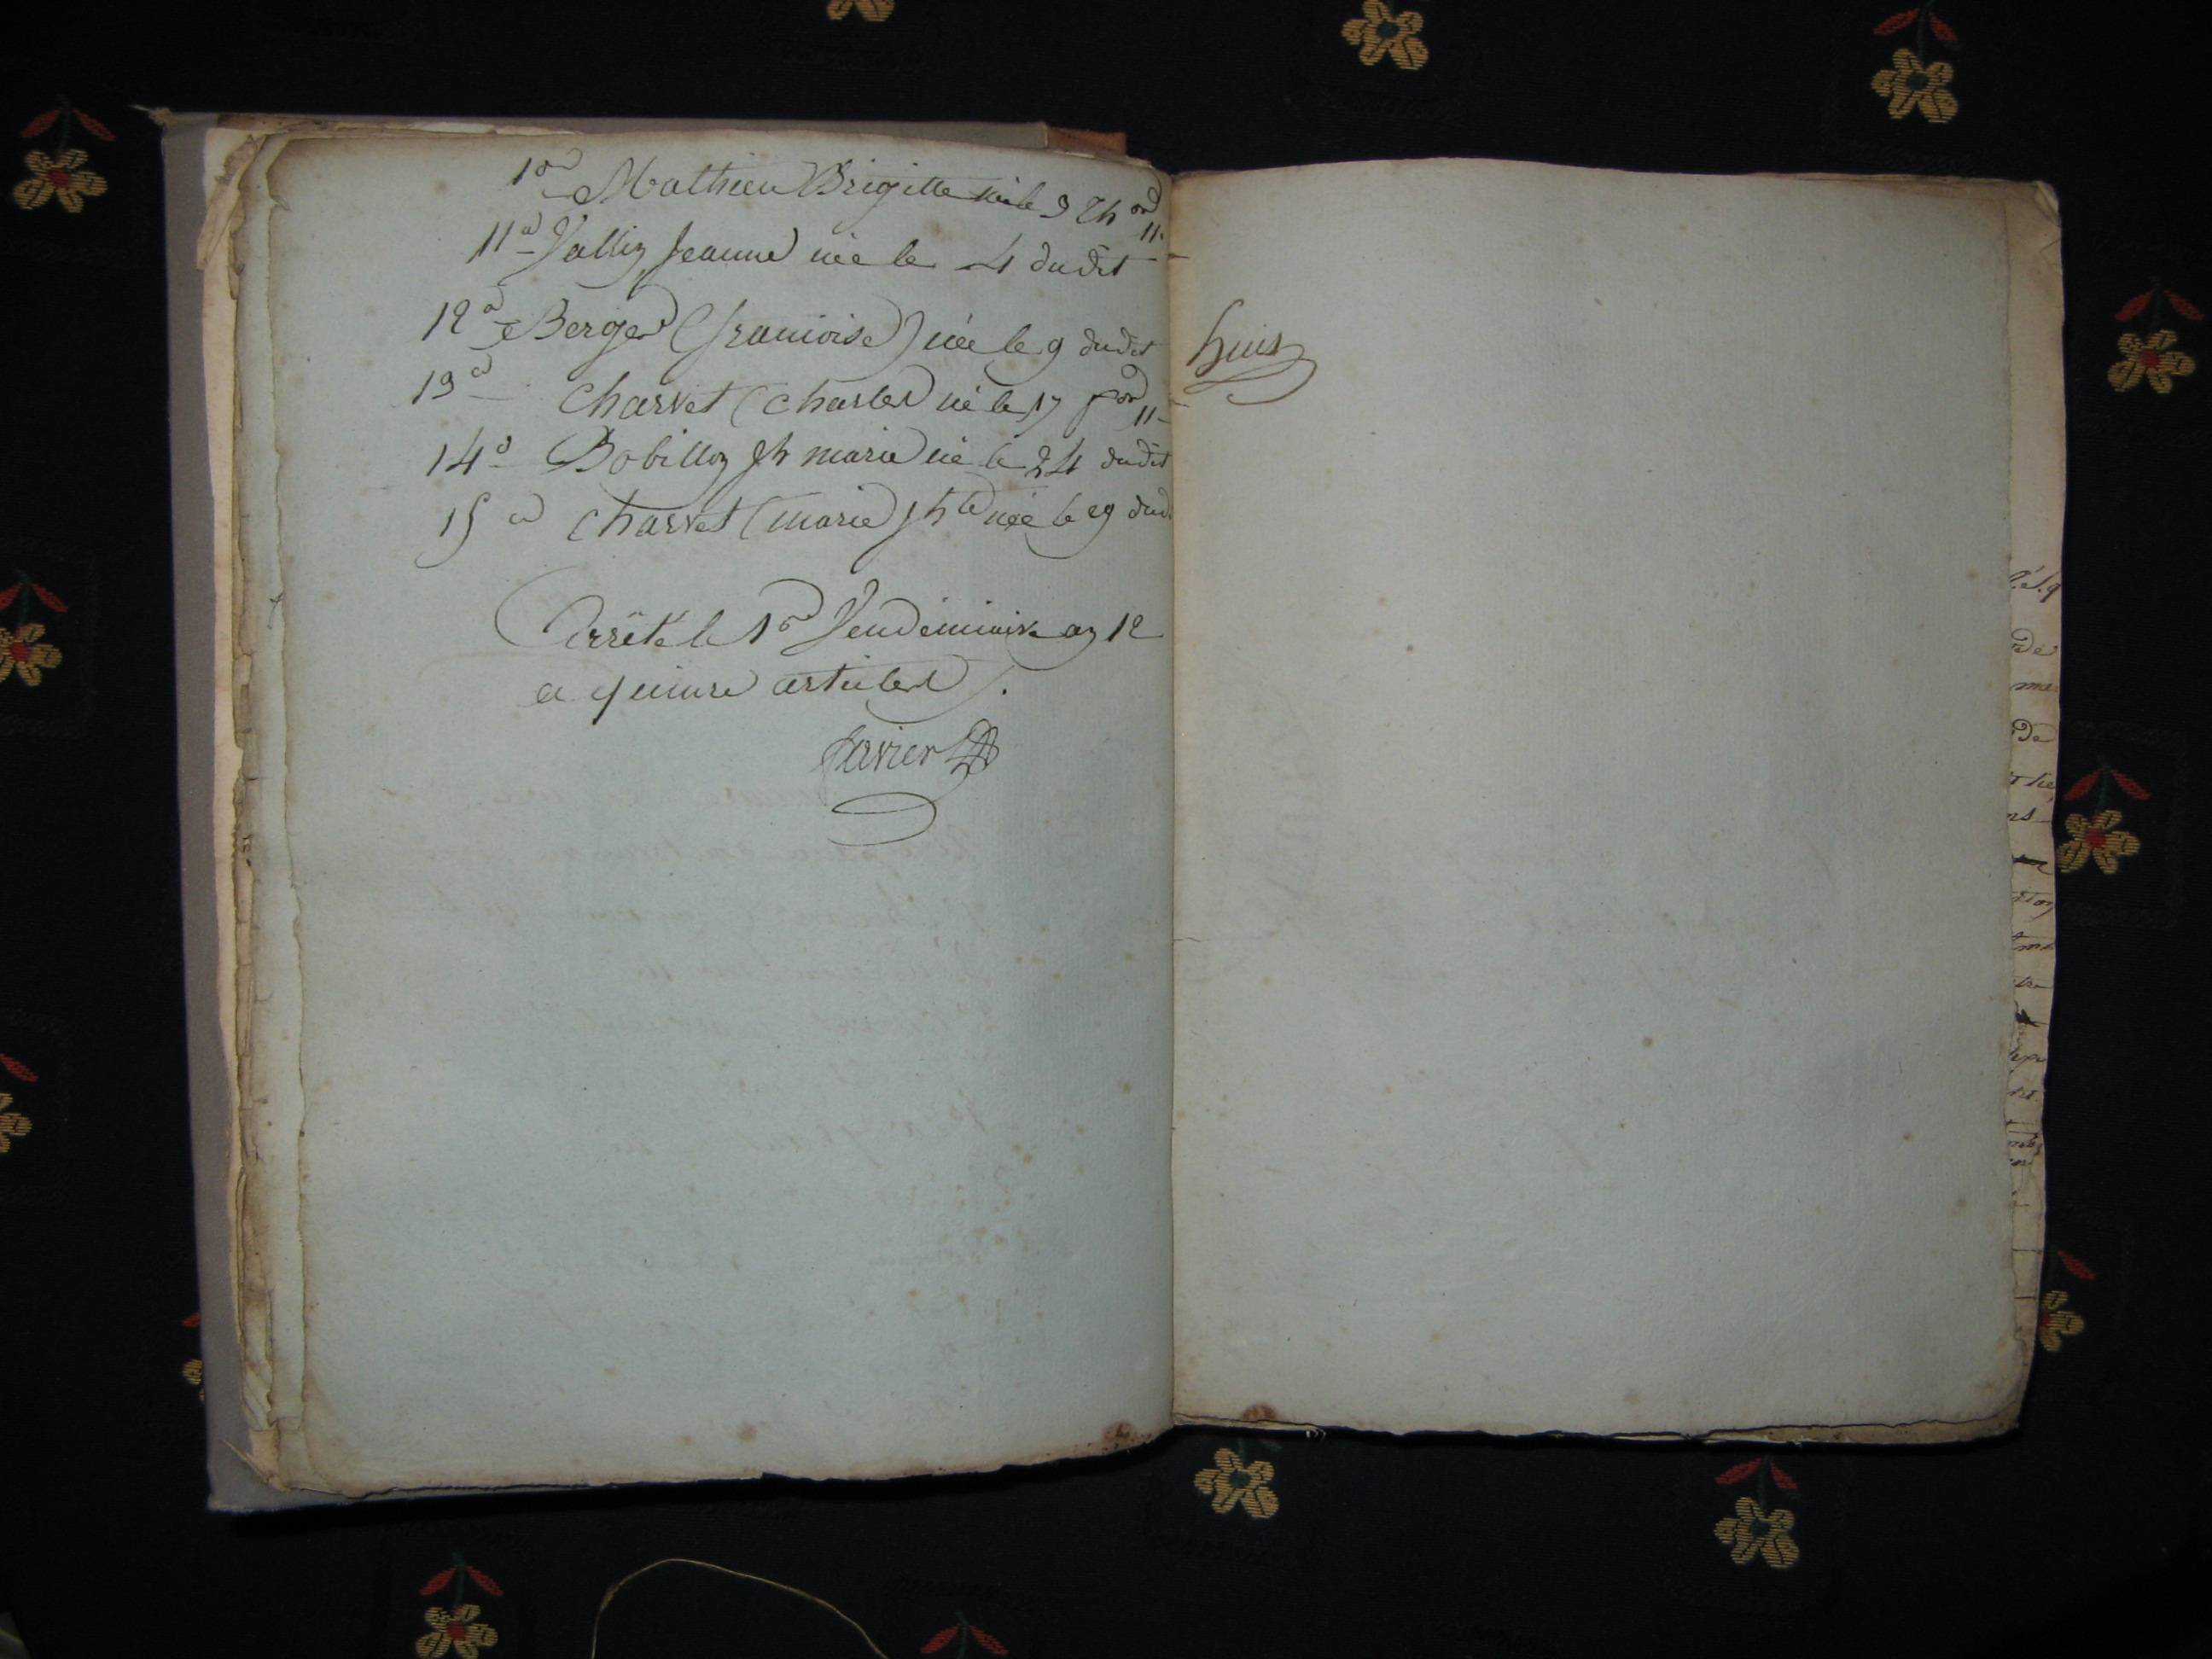 10° Mathieu Brigitte née le 3 th.or
11.
11° Vallin Jeanne née le 4 dudit
12° Berger (francoise) née le 9 dudit
13° Charvet (charles né le 17 f.or
11
14° Bobillon jh marie né le 24 dudit
15° Charvet (marie jh.te née le 29 dud.
Arrêté le 1.er Vendemiaire an 12
a quinze articles.
favier
huis